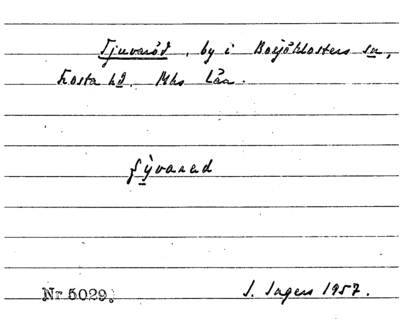 Tjuvaröd, by i Bosjöklosters sn,
Frosta hd. Mhs Län.
ʃỳvarad
Nr 5029. S. Ingers 1957.